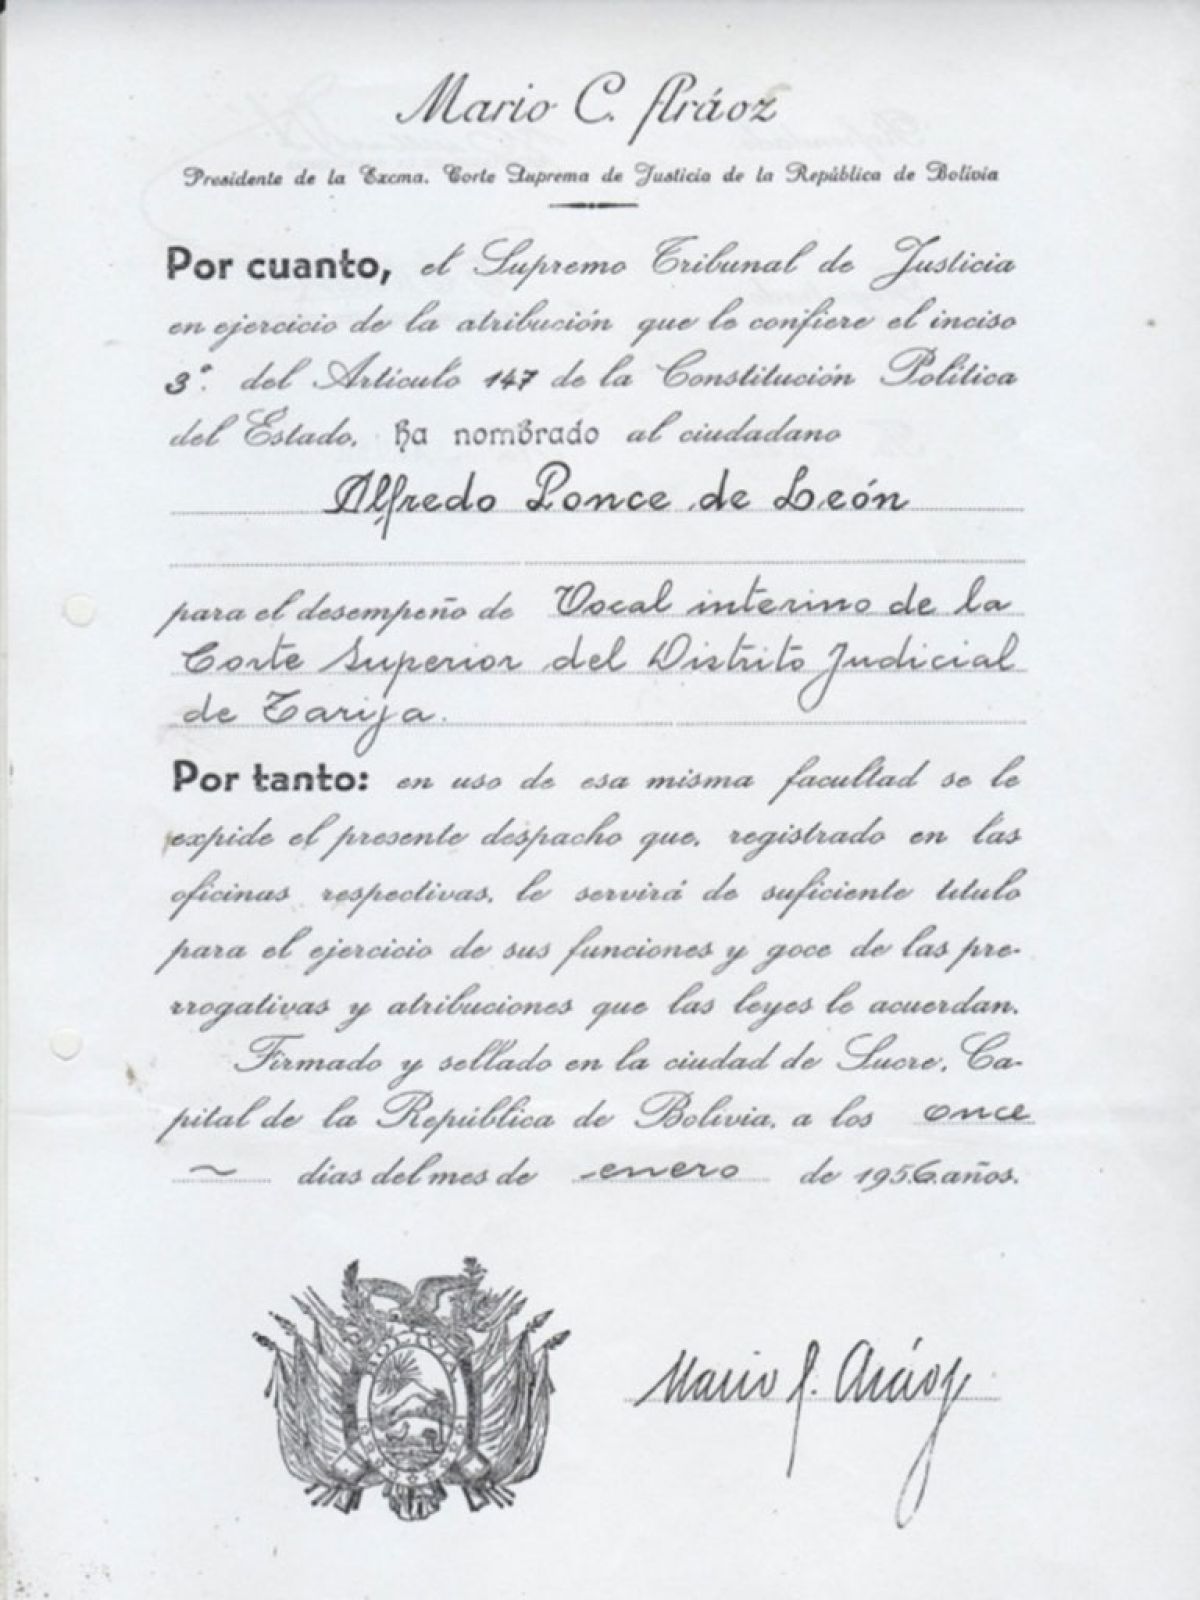 Mario C. Aráoz
Presidente de la Excma. Corte Suprema de Justicia de la República de Bolivia
Por cuanto, el Supremo Tribunal de Justicia
en ejercicio de la atribución que le confiere el inciso
3º. del Artículo 147 de la Constitución Política
del Estado, ha nombrado al ciudadano
Alfredo Ponce de León
para el desempeño de Vocal interino de la
Corte Superior del Distrito Judicial
de Tarija.
Por tanto: en uso de esa misma facultad se le
expide el presente despacho que, registrado en las
oficinas respectivas, le servirá de suficiente título
para el ejercicio de sus funciones y goce de las pre-
rrogativas y atribuciones que las leyes le acuerdan.
Firmado y sellado en la ciudad de Sucre, Ca-
pital de la República de Bolivia, a los once
días del mes de enero de 1956. años.
BOLIVIA
Mario C. Aráoz